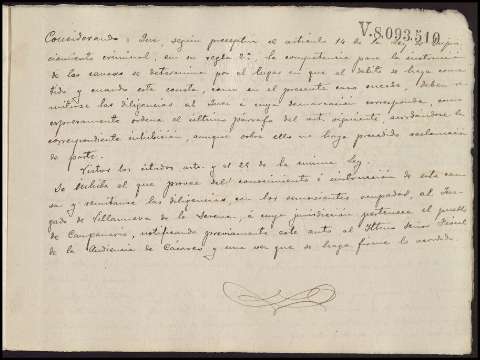 V.8.093.510
Considerando: Que, según preceptúa el artículo 14 de la ley de Enjui-
ciamiento criminal, en su regla 2ª. la competencia para la instrucción
de las causas se determina por el lugar en que el delito se haya come-
tido y cuando este conste, como en el presente caso sucede, deben re-
mitirse las diligencias al Juez á cuya demarcación corresponda, como
expresamente ordena el último párrafo del art. siguiente, acordándose la
correspondiente inhibición, aunque sobre ello no haya precedido reclamación
de parte.
Vistos los citados arts. y el 25 de la misma ley.
Se inhibe el que provee del conocimiento é instrucción de esta cau-
sa y remítanse las diligencias, con los semovientes ocupados, al Juz-
gado de Villanueva de la Serena, á cuya jurisdicción pertenece el pueblo
de Campanario, notificando previamente este auto al Iltmo Señor Fiscal
de la Audiencia de Cáceres y una vez que se haga firme lo acordado